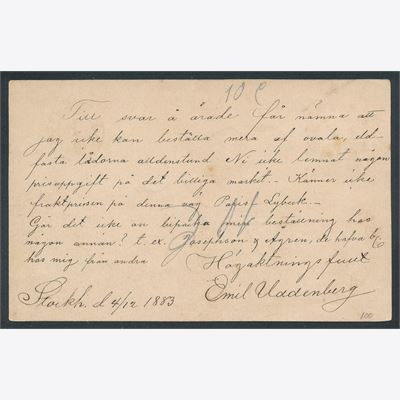 10 C
Till svar å ärade får nämna att
jag icke kan beställa mera af ovala, eld-
fasta lådorna alldenstund Ni icke lemnat någon
prisuppgift på det billiga market. Känner icke
fraktprisen på denna väg Paris-Lybeck. -
Går det icke an bipacka min beställning hos
någon annan? t. ex. Josephson & Ågren, de hafva
hos mig från andra
Högaktningsfullt
Stockh. d 4/12 1883 Emil Uddenberg
100